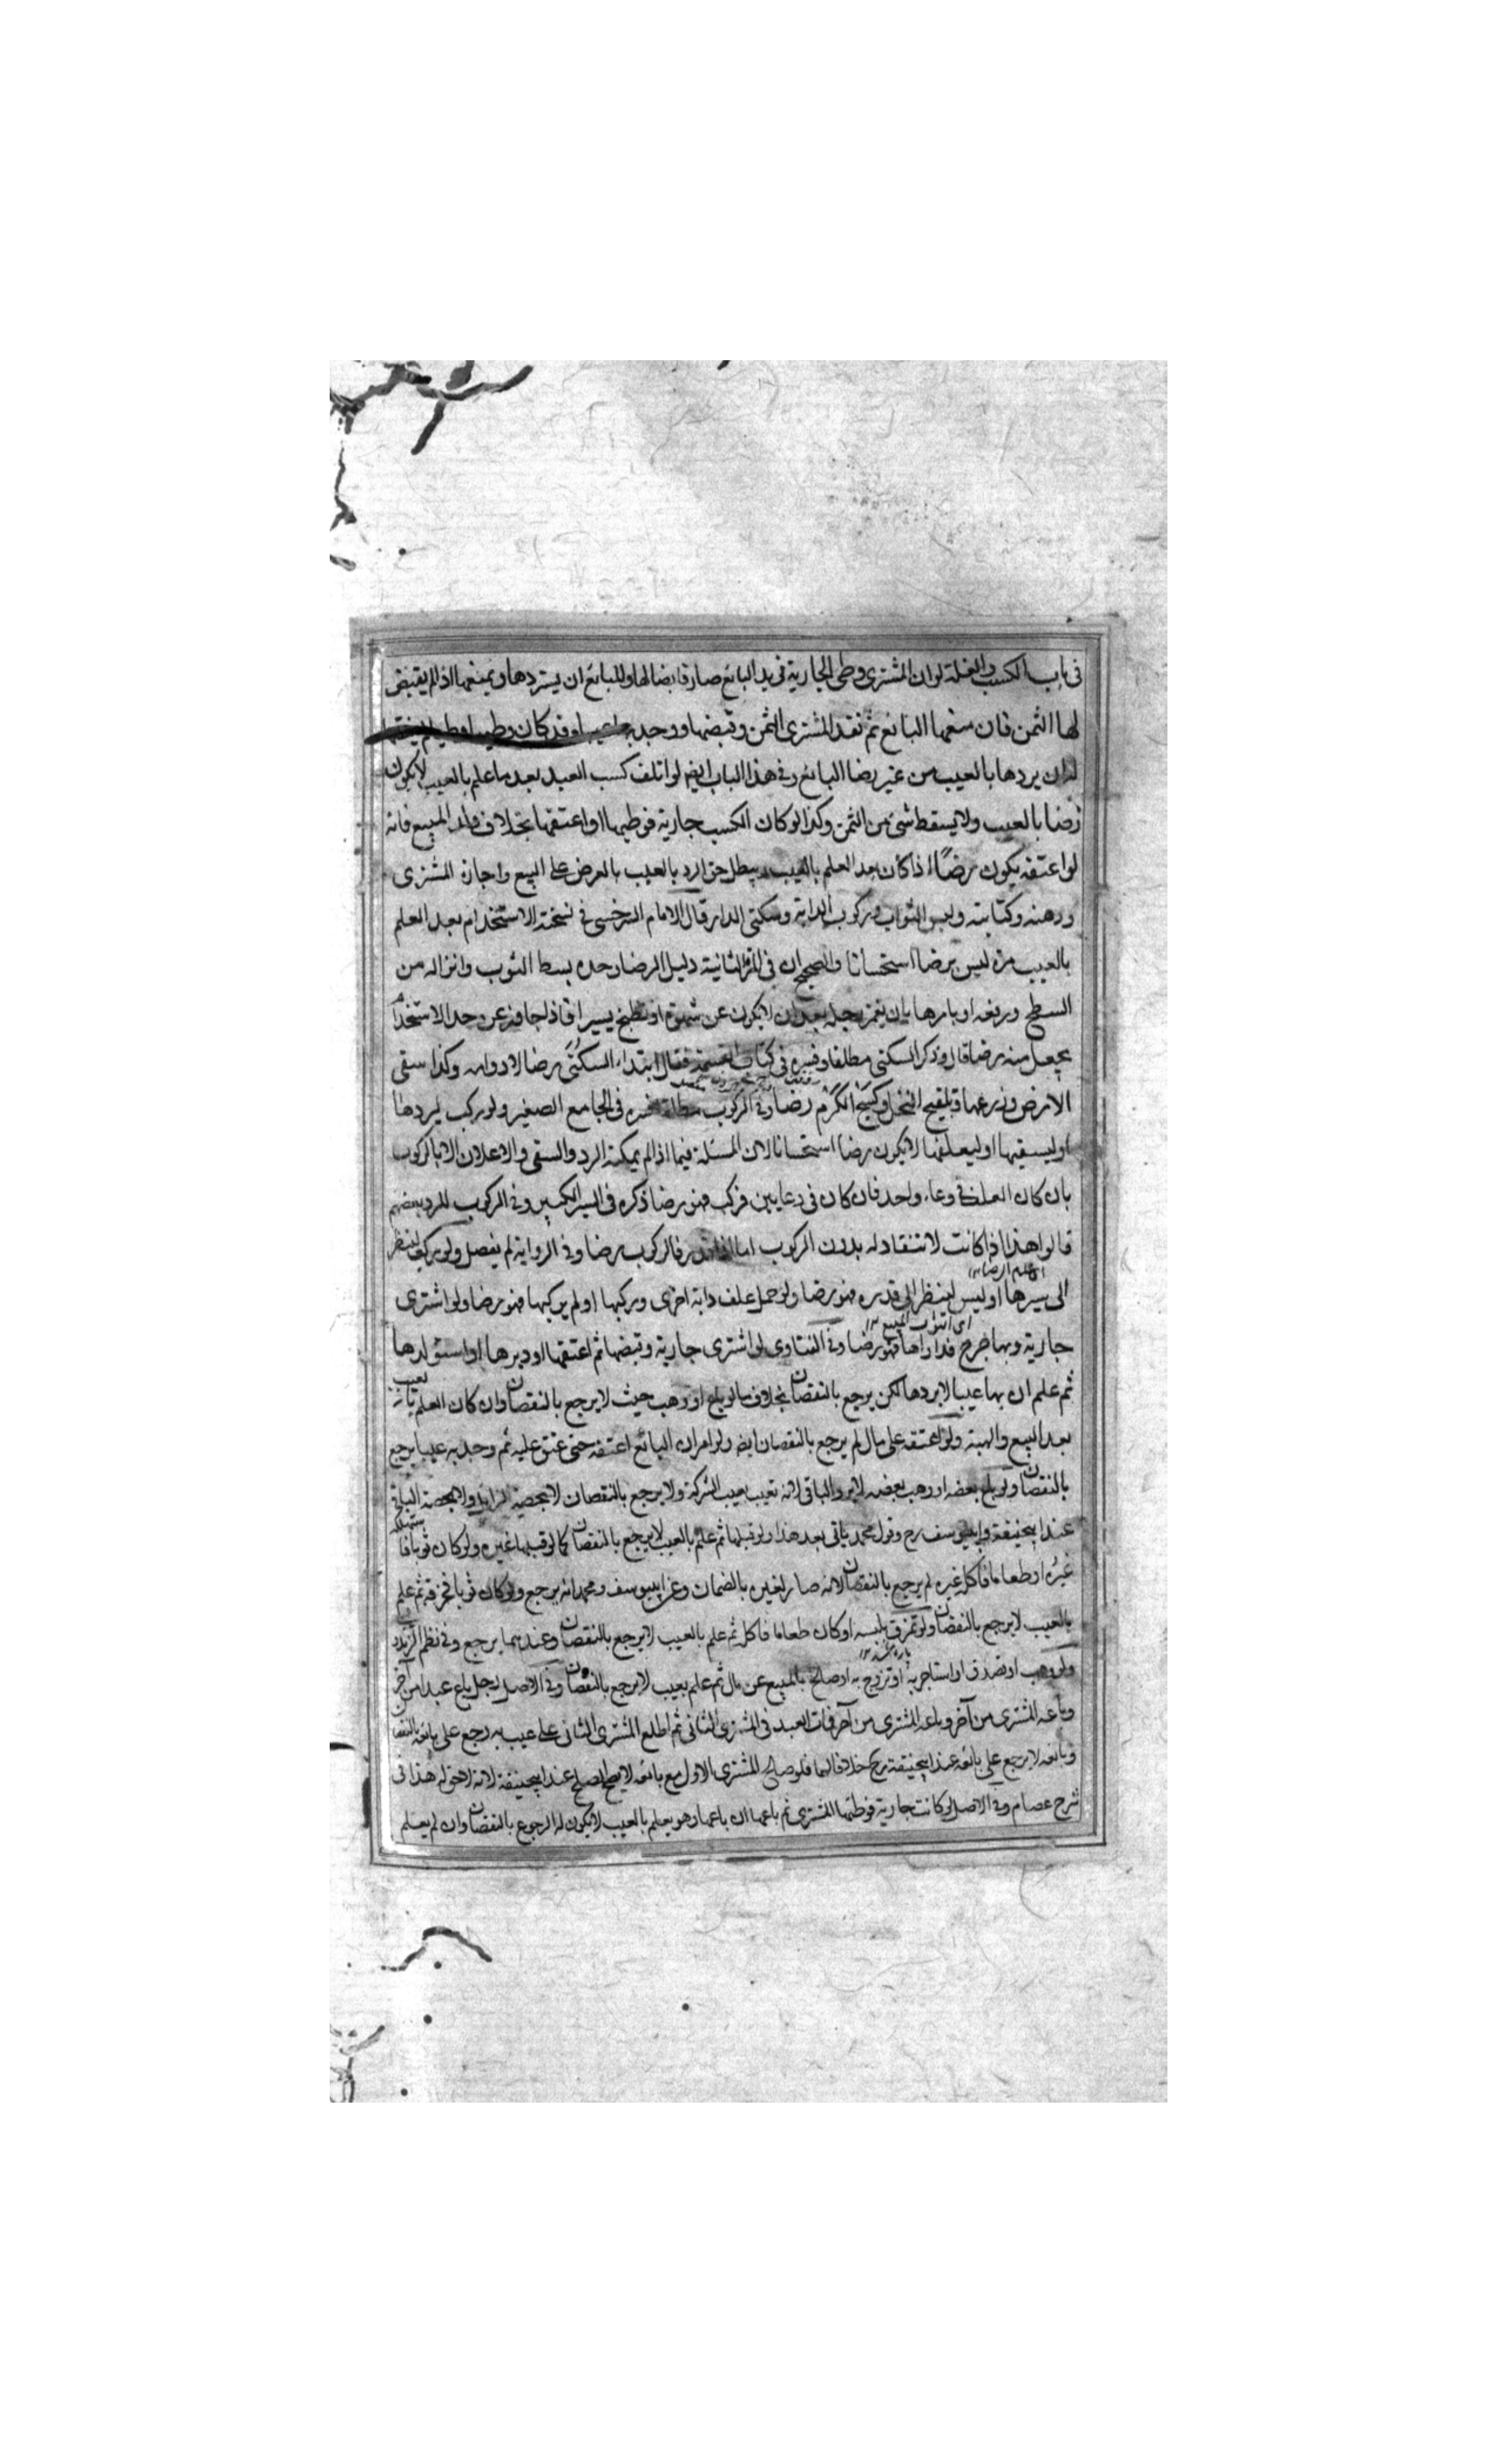 في باب الكسب والغلة لو ان المشترى وطى الجارية في يد البائع صار قابضا لها وللبائع ان يستردها ويمنعها اذا لم يقبض
لها الثمن فان منعها البائع ثم نقد المشترى الثمن وقبضها ووجد بها عيبا وقد كان وطيها
له ان يردها بالعيب من غير رضا البائع وفي هذا الباب ايضا لو اتلف كسب العبد بعد ما علم بالعيب لا يكون
رضا بالعيب ولا يسقط شئ من الثمن وكذا لو كان الكسب جارية فوطيها او اعتقها بخلاف ولد المبيع فانه
لو اعتقه يكون رضًا اذا كان بعد العلم بالعيب يبطل حق الرد بالعيب بالعرض على البيع واجارة المشترى
ورهنه وكتابته ولبس الثواب وركوب الدابة وسكنى الدار قال الامام السرخسى في نسخته الاستخدام بعد العلم
بالعيب مرة ليس برضا استحسانا والصحيح ان في المرة الثانية دليل الرضا وحده بسط الثوب وانزاله من
السطح ورفعه او يامرها بان يغمز رجله بعد ان لا يكون عن شهوة او يطبخ يسيرا فاذا جاوز عن حد الاستخدام
يجعل منه رضا قال وذكر السكنى مطلقا وفسره في كتاب القسمة فقال ابتداء السكنى رضا لا دوامه وكذا سقى
الارض وزرعها وتلقيح النخل وكسح الكرم رضا وفي الركوب مطلقا فسره في الجامع الصغير ولو ركب ليردها
او ليسقيها او ليعلفها لا يكون رضا استحسانا لان المسئلة فيما اذا لم يمكنه الرد والسقى والاعلاف الا بالركوب
بان كان العلف في وعاء واحد فان كان في وعايين فركب فهو رضا ذكره في السير الكبير وفي الركوب للرد بعضهم
قالوا هذا اذا كانت لا تنقاد له بدون الركوب اما اذا فالركوب رضا وفي الرواية لم يفصل ولو ركب لينظر
الى سيرها او لبس لينظر الى قدره فهو رضا ولو حمل علف دابة اخرى وركبها او لم يركبها فهو رضا ولو اشترى
جارية وبها جرح فداواها فهو رضا وفي الفتاوى لو اشترى جارية وقبضها ثم اعتقها او دبرها او استولدها
ثم علم ان بها عيبا لا يردها لكن يرجع بالنقصان بخلاف ما لو باع او وهب حيث لا يرجع بالنقصان وان كان العلم بانه تعيب
بعد البيع والهبة ولو اعتقه على مال لم يرجع بالنقصان ايضا ولو اقر ان البائع اعتقه حتى عتق عليه ثم وجد به عيبا يرجع
بالنقصان ولو باع بعضه او وهب بعضه لا يرد الباقى لانه تعيب بعيب الشركة ولا يرجع بالنقصان لا بحصة الزايل ولا بحصة الباقى
عند ابيحنيفة وابييوسف رح وقول محمد ياتى بعد هذا ولو قتلها ثم علم بالعيب لا يرجع بالنقصان كما لو قتلها غيره ولو كان ثوبا فاستهلكه
غيره او طعاما فاكله غيره لم يرجع بالنقصان لانه صار لغيره بالضمان وعن ابييوسف ومحمد انه يرجع ولو كان ثوبا فخرقه ثم علم
بالعيب لا يرجع بالنقصان ولو تمزق بلبسه او كان طعاما فاكل ثم علم بالعيب لا يرجع بالنقصان وعندهما يرجع وفي نظم
ولو وهب او تصدق او استاجر به او تزوج به او صالح بالمبيع عن مال ثم علم بعيب لا يرجع بالنقصان وفي الاصل رجل باع عبدا من آخر
وباعه المشترى من آخر وباعه المشترى من آخر فمات العبد في المشترى الثانى ثم اطلع المشترى الثانى على عيب به رجع على بائعه بالنقصان
وبائعه لا يرجع على بائعه عند ابيحنيفة رح خلافا لهما فلو صالح المشترى الاول مع بائعه لا يصح الصلح عند ابيحنيفة لانه لا حق له هذا في
شرح عصام وفي الاصل لو كانت جارية فوطئها المشترى ثم باعها ان باعها وهو يعلم بالعيب لا يكون له الرجوع بالنقصان وان لم يعلم